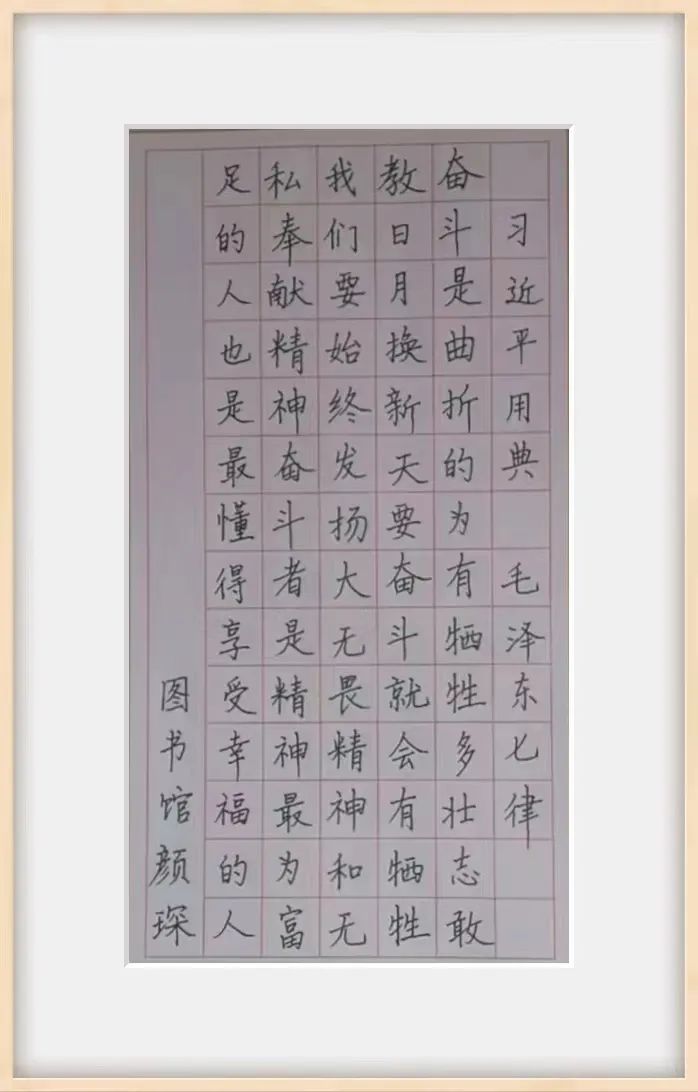 习近平用典 毛泽东七律
奋斗是曲折的为有牺牲多壮志敢
教日月换新天要奋斗就会有牺牲
我们要始终发扬大无畏精神和无
私奉献精神奋斗者是精神最为富
足的人也是最懂得享受幸福的人
图书馆颜琛